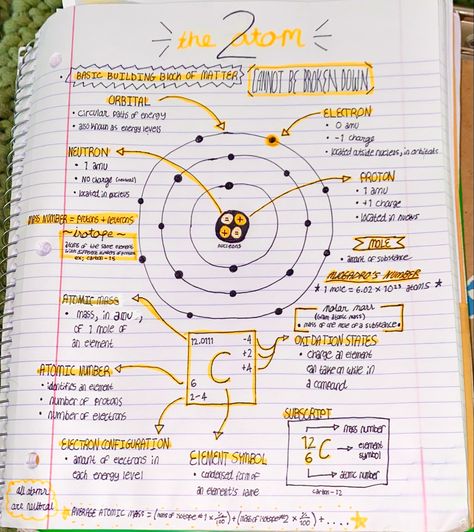 2
the atom
• BASIC BUILDING BLOCK OF MATTER
CANNOT BE BROKEN DOWN
ORBITAL
• circular paths of energy
• also known as energy levels
ELECTRON
• 0 amu
• -1 charge
• located outside nucleus, in orbitals
NEUTRON
• 1 amu
• NO charge (neutral)
• located in nucleus
PROTON
• 1 amu
• +1 charge
• located in nucleus
NUCLEUS
MASS NUMBER = protons + neutrons
~ isotope ~
atoms of the same element
with different numbers of
ex: carbon-13
MOLE
• amount of substance
AVOGADRO'S NUMBER
* 1 mole = 6.02 x 10²³ atoms *
molar mass
(gram atomic mass)
• mass of one mole of a substance
ATOMIC MASS
• mass, in amu,
of 1 mole of
an element
12.0111
-4
+2
+4
C
6
2-4
OXIDATION STATES
• charge an element
can take on while in
a compound
ATOMIC NUMBER
• identifies an element
• number of protons
• number of electrons
SUBSCRIPT
12
6
C
mass number
element
symbol
atomic number
carbon-12
ELECTRON CONFIGURATION
• amount of electrons in
each energy level
ELEMENT SYMBOL
• condensed form of
an element's name
all atoms
are neutral
AVERAGE ATOMIC MASS = (mass of isotope #1 x %/100) + (mass of isotope #2 x %/100) + ....